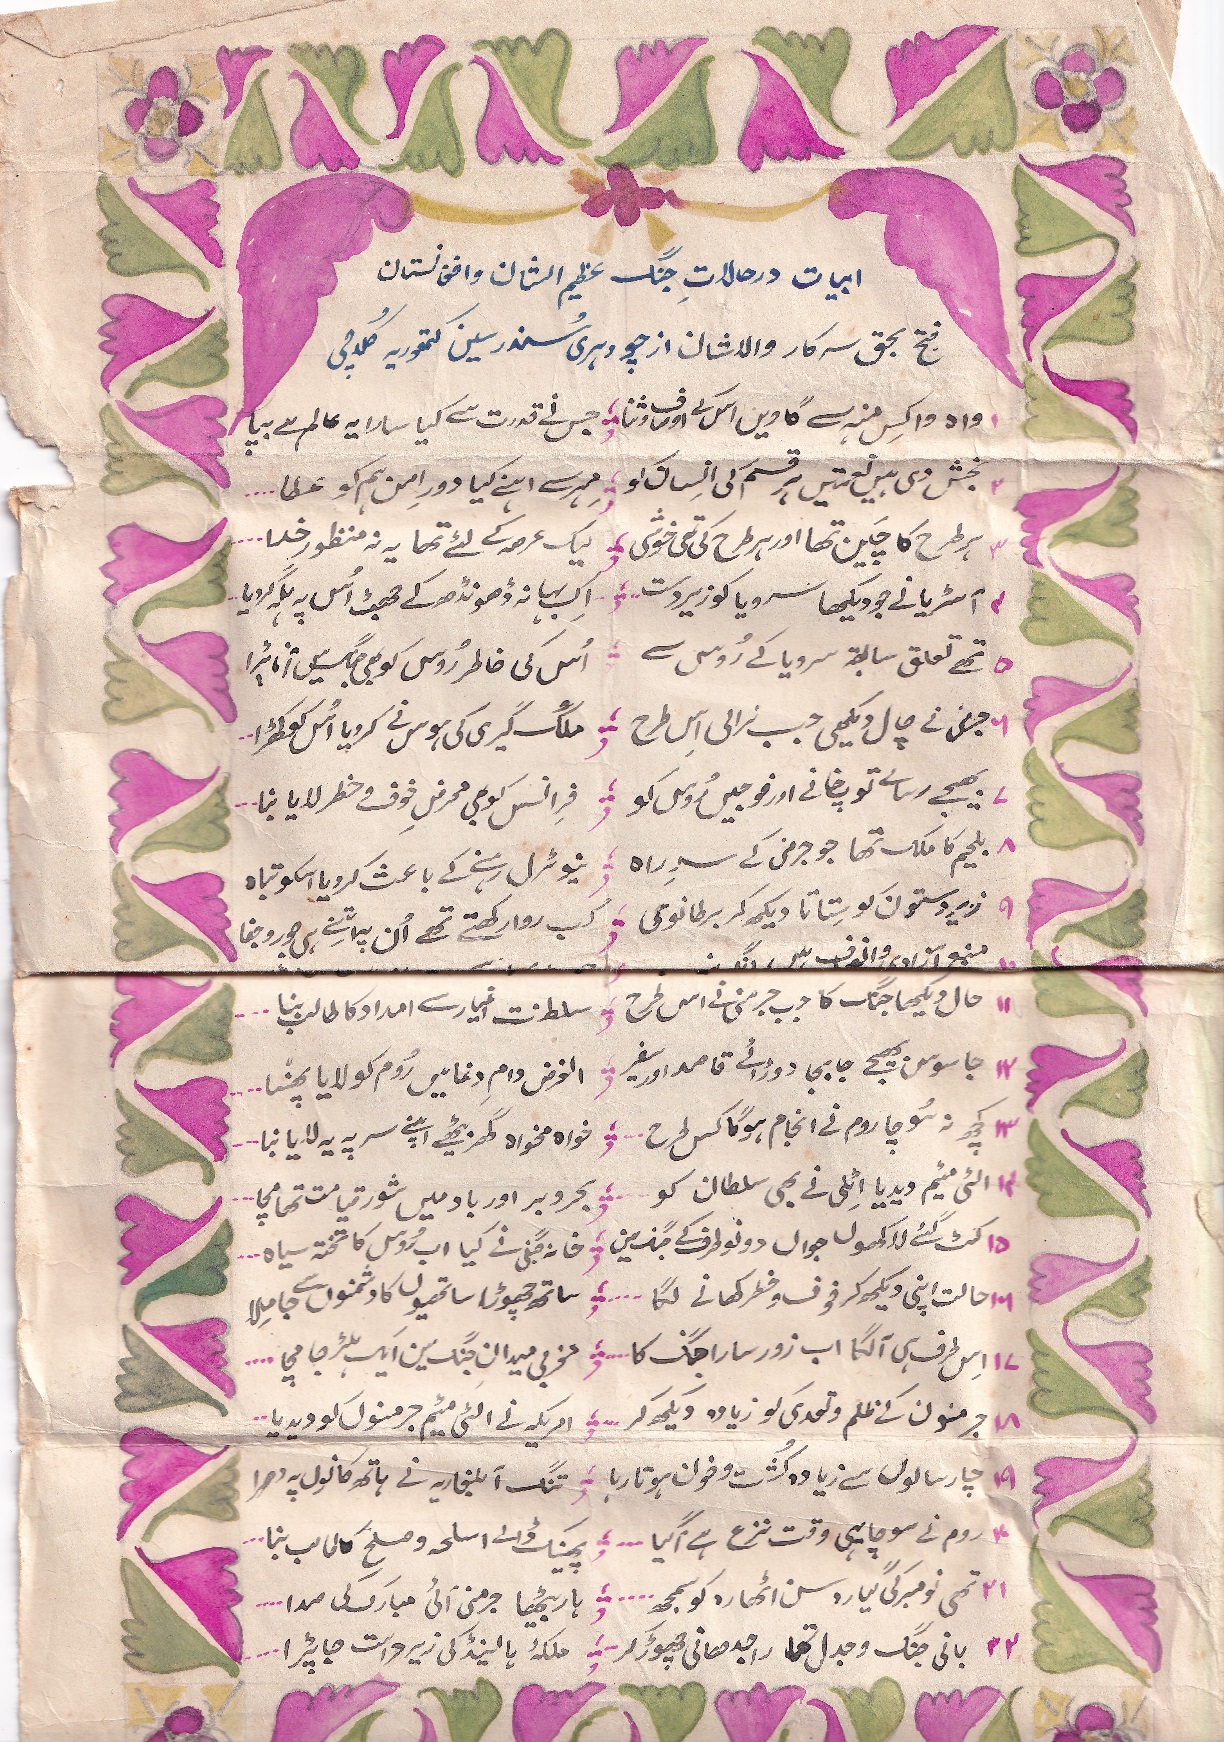 ابیات درحالاتِ جنگ عظیم الشان و افغانستان
فتح بحق سرکار والاشان از چودہری سُندر سین کتھوریہ
۱ واہ وا کِس منہ سے گاویں اس کے اوصاف و ثنا جس نے قدرت سے کیا سارا یہ عالم ہے بپا
۲ بخش دی ہیں نعمتیں ہر قسم کی انِسان کو مِہر سے اپنے کیا دورِ امن ہم کو عطا
۳ ہر طرح کا چَین تھا اور ہر طرح کی تھی خوشی لیک عرصہ کے لئے تھا یہ نہ منظورِ خدا
۴ آسٹریا نے جو دیکھا سرویا کو زیردست اِک بہانہ ڈھونڈھ کے جھٹ اُس پہ ہلّہ کر دیا
۵ تھے تعلق سابقہ سرویا کے رُوس سے اُس کی خاطر رُوس کو بھی جنگ میں آنا پڑا
۶ جرمنی نے چال دیکھی جب نرالی اِس طرح ملک گیری کی ہوس نے کر دیا اُس کو کھڑا
۷ بھیجے رسالے توپخانے اور فوجیں رُوس کو فرانس کو بھی معرضِ خوف و خطر لایا بنا
۸ بلجیم کا ملک تھا جو جرمنی کے سدِ راہ نیوٹرل رہنے کے باعث کر دیا اسکو تباہ
۹ زیردستوں کو ستاتا دیکھ کر برطانوی کب روا رکھتے تھے اُن پہ اتنے ہی جور و جفا
۱۰ منبعِ آزادی و انصاف ہیں
۱۱ حال دیکھا جنگ کا جب جرمنی نے اس طرح سلطنت اغیار سے امداد کا طالب بنا
۱۲ جاسوس بھیجے جابجا دوڑائے قاصد اور سفیر الغرض دامِ دغا میں رُوم کو لایا پھنسا
۱۳ کچھ نہ سُوچا روم نے انجام ہوگا کس طرح خواہ مخواہ گھر بیٹھے اپنے سر پہ یہ لایا بَلا
۱۴ الٹی میٹم دیدیا اٹلی نے بھی سلطان کو بحر و بر اور باد میں شور قیامت تھا مچا
۱۵ کٹ گئے لاکھوں جواں دونو طرف کے جنگ میں خانہ جنگی نے کیا اب رُوس کا تختہ سیاہ
۱۶ حالت اپنی دیکھ کر خوف و خطر کھانے لگا ساتھ چھوڑا ساتھیوں کا دشمنوں سے جا مِلا
۱۷ اِس طرف ہی آ لگا اب زور سارا جنگ کا مغربی میدانِ جنگ میں ایک ہلڑ جا مچا
۱۸ جرمنوں کے ظلم و تعدی کو زیادہ دیکھ کر امریکہ نے الٹی میٹم جرمنوں کو دیدیا
۱۹ چار سالوں سے زیادہ کُشت و خون ہوتا رہا تنگ آ بلغاریہ نے ہاتھ کانوں پہ دھرا
۲۰ روم نے سوچا یہی وقت نزع ہے آ گیا پھینک ڈالے اسلحہ و صلح کا طالب بنا
۲۱ تھی نومبر کی گیارہ سن اٹھارہ کو سمجھ ہار بیٹھا جرمنی آئی مبارک کی صدا
۲۲ بانی جنگ و جدل تھا راجدھانی چھوڑ کر ملکۂ ہالینڈ کی زیرِ حراست جا پڑا